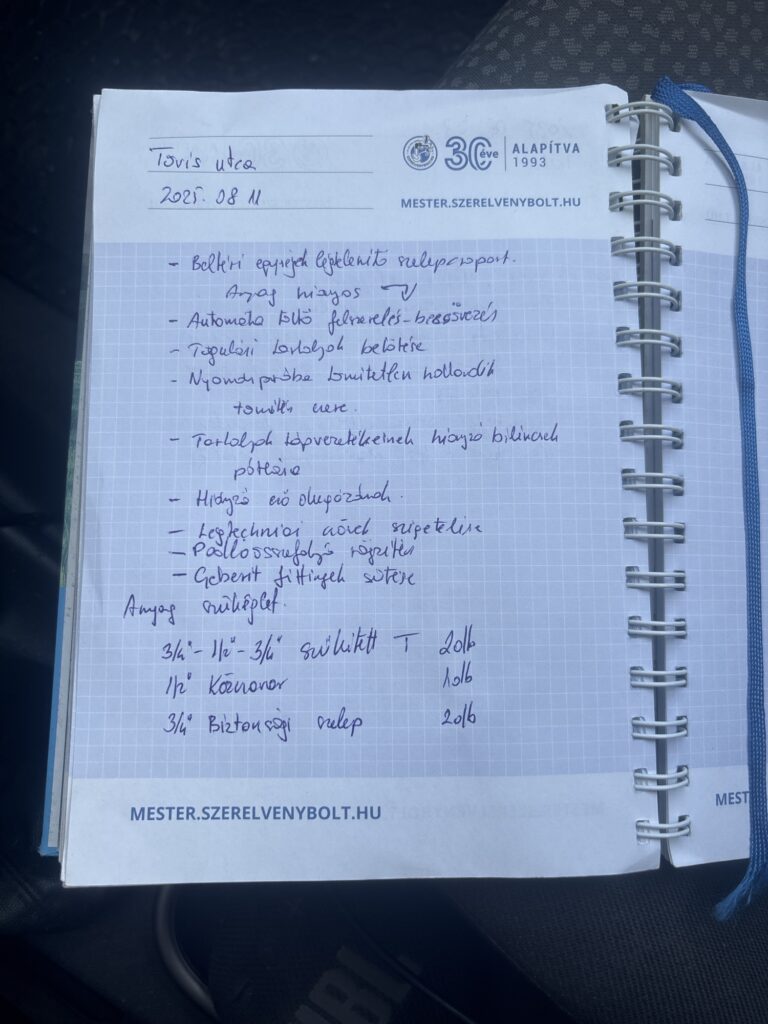 Tövis utca
30 éve ALAPÍTVA
1993
2025. 08 11
MESTER.SZERELVENYBOLT.HU
- Beltéri egységek légtelenítő szelepcsoport.
Anyag hiányos
- Automata töltő felszerelés-
- Tágulási tartályok bekötése
- Nyomáspróba tömítetlen hollandik
tömítés csere.
- Tartályok tápvezetékeinek hiányzó bilincsek
pótlása
- Hiányzó
- Légtechnikai csövek szigetelése
- Padlóösszefolyó rögzítés
- Geberit fittingek sütése
Anyag szükséglet.
3/4"- 1/2"- 3/4" szűkített T 2db
1/2" Közcsavar 1db
3/4" Biztonsági szelep 2db
MESTER.SZERELVENYBOLT.HU
MEST